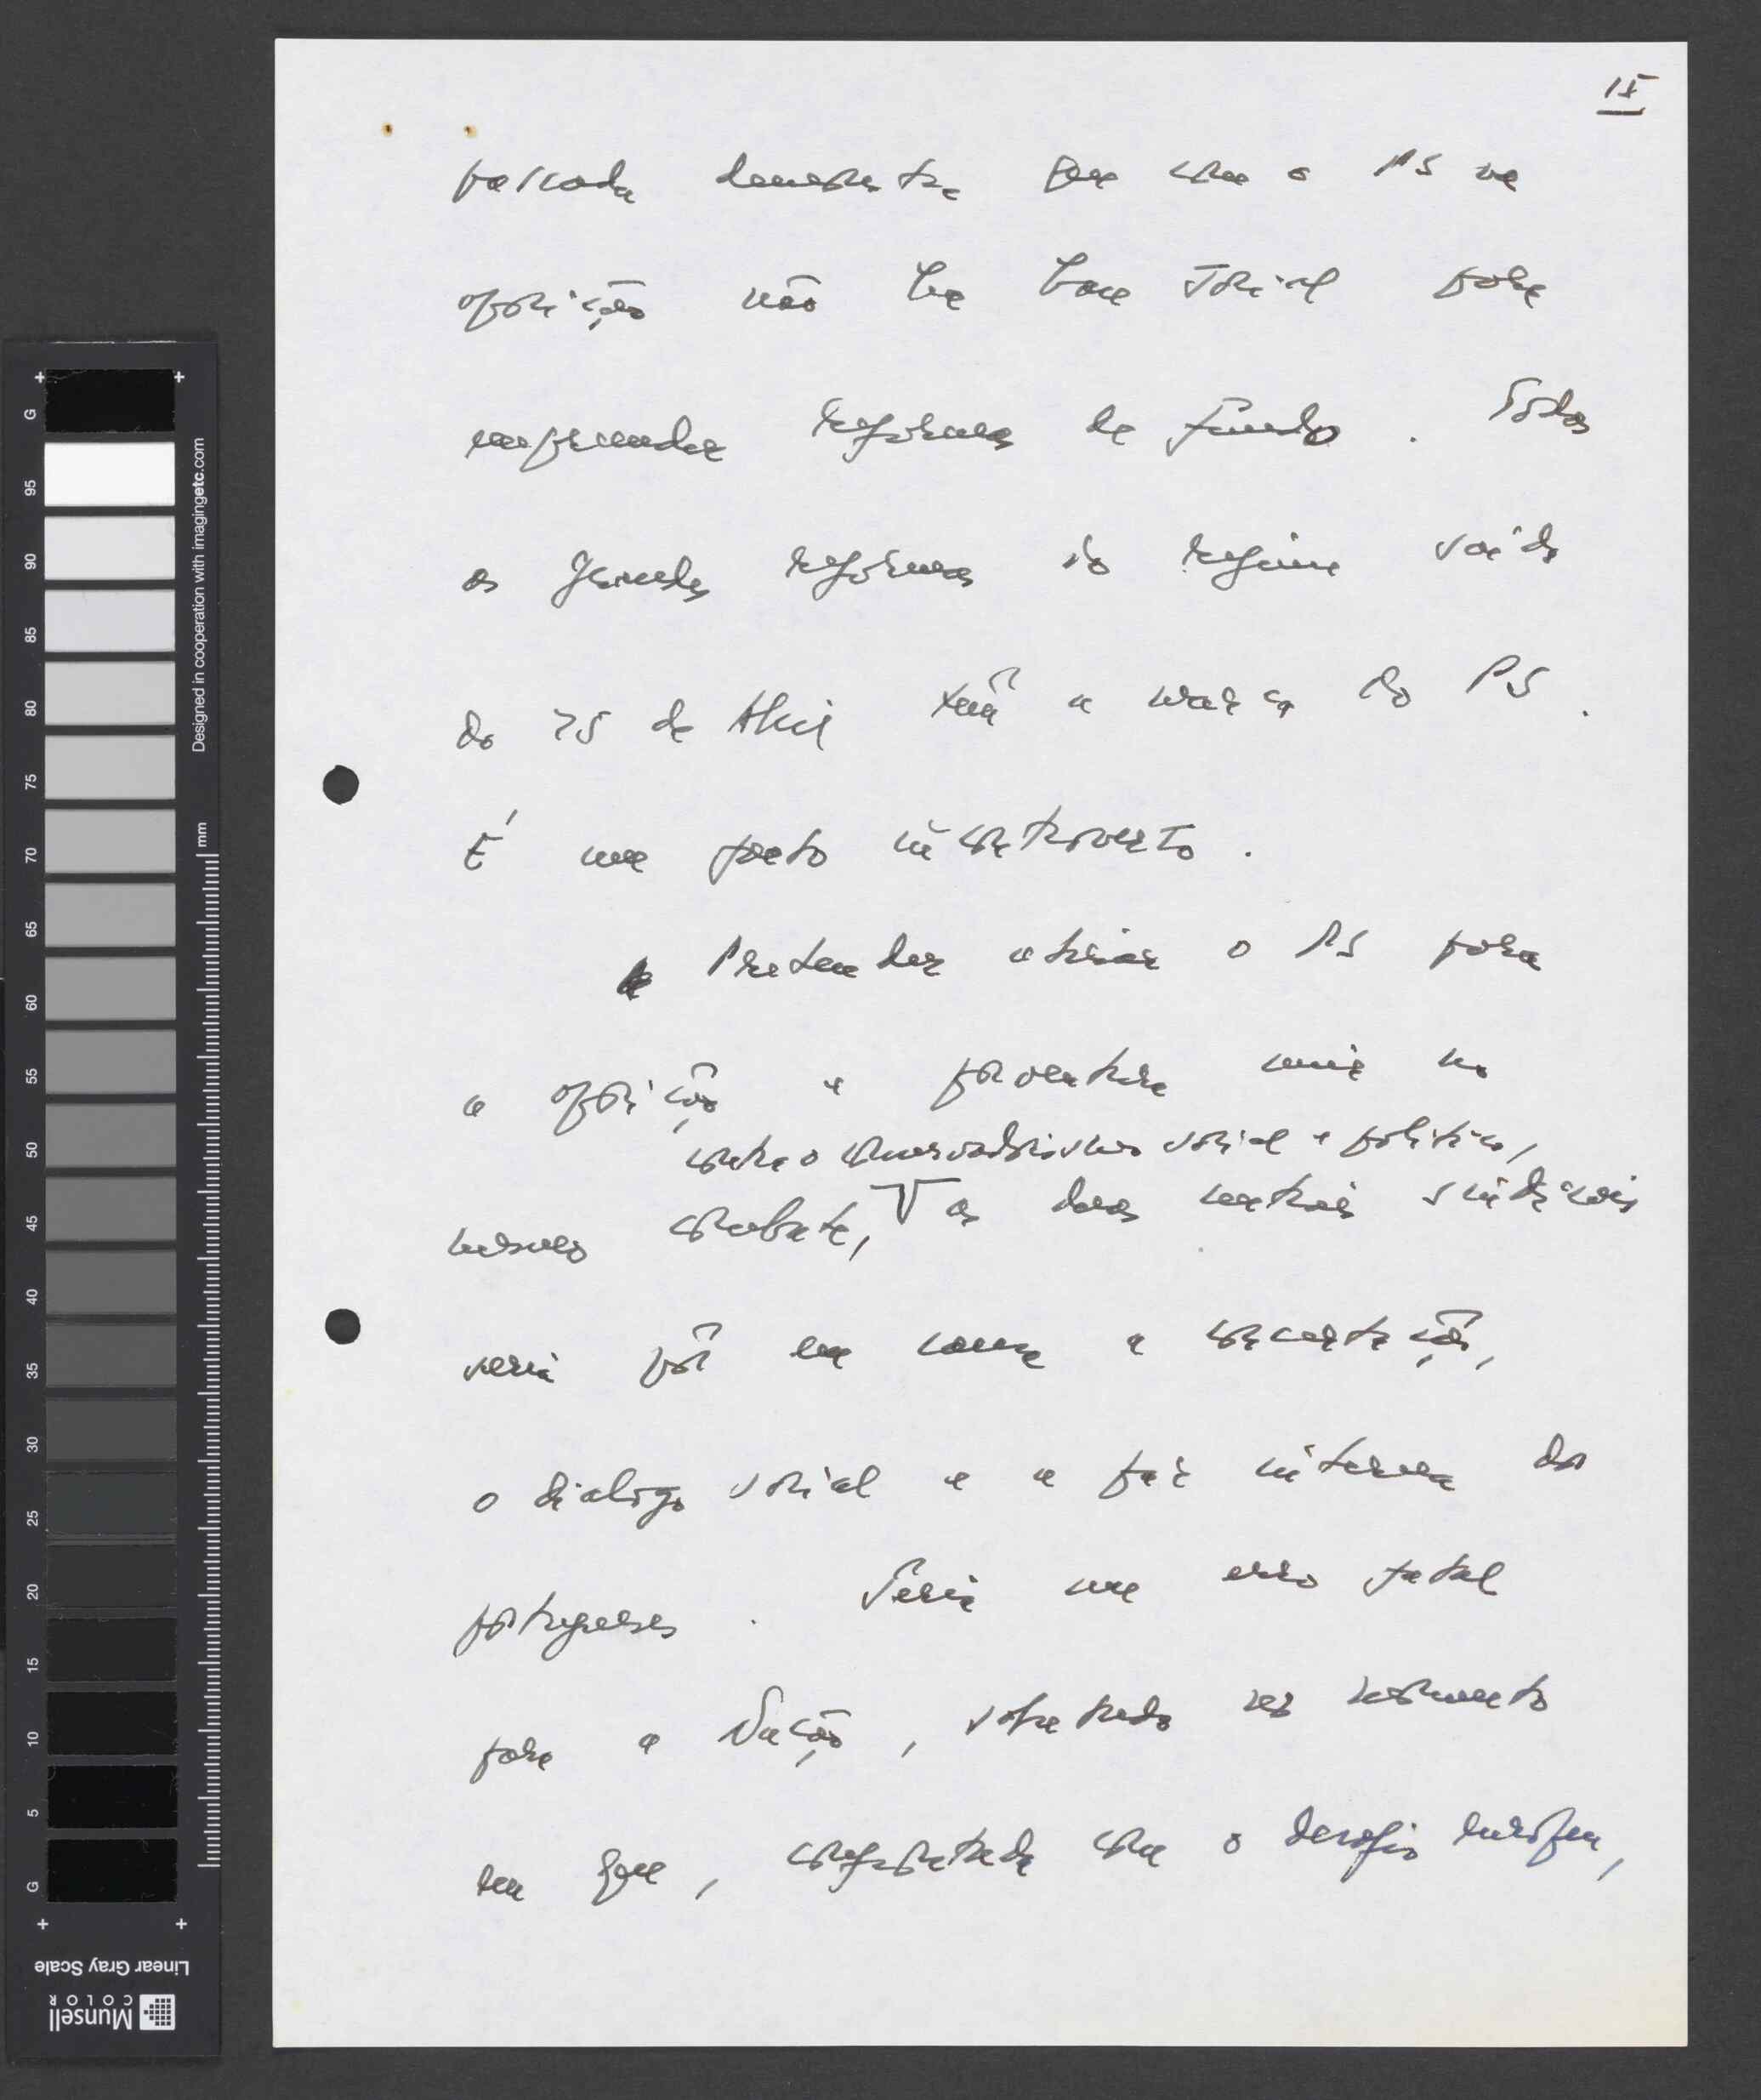 15
passado demonstra que com o PS na
oposição não há base social para
empreender reformas de fundo. Todas
as grandes reformas do regime saído
do 25 de Abril têm a marca do PS.
É um facto incontroverso.
Pretender atirar o PS para
a oposição e porventura unir no
contra o conservadorismo social e político,
mesmo combate, as duas centrais sindicais
seria pôr em causa a concertação,
o dialogo social e a paz interna dos
portugueses. Seria um erro fatal
para a Nação, sobretudo no momento
em que, confrontada com o desafio europeu,
G
95
90
85
80
75
70
65
60
55
50
45
40
35
30
25
20
15
10
5
G
mm
Designed in cooperation with imagingetc.com
Linear Gray Scale
Munsell
COLOR